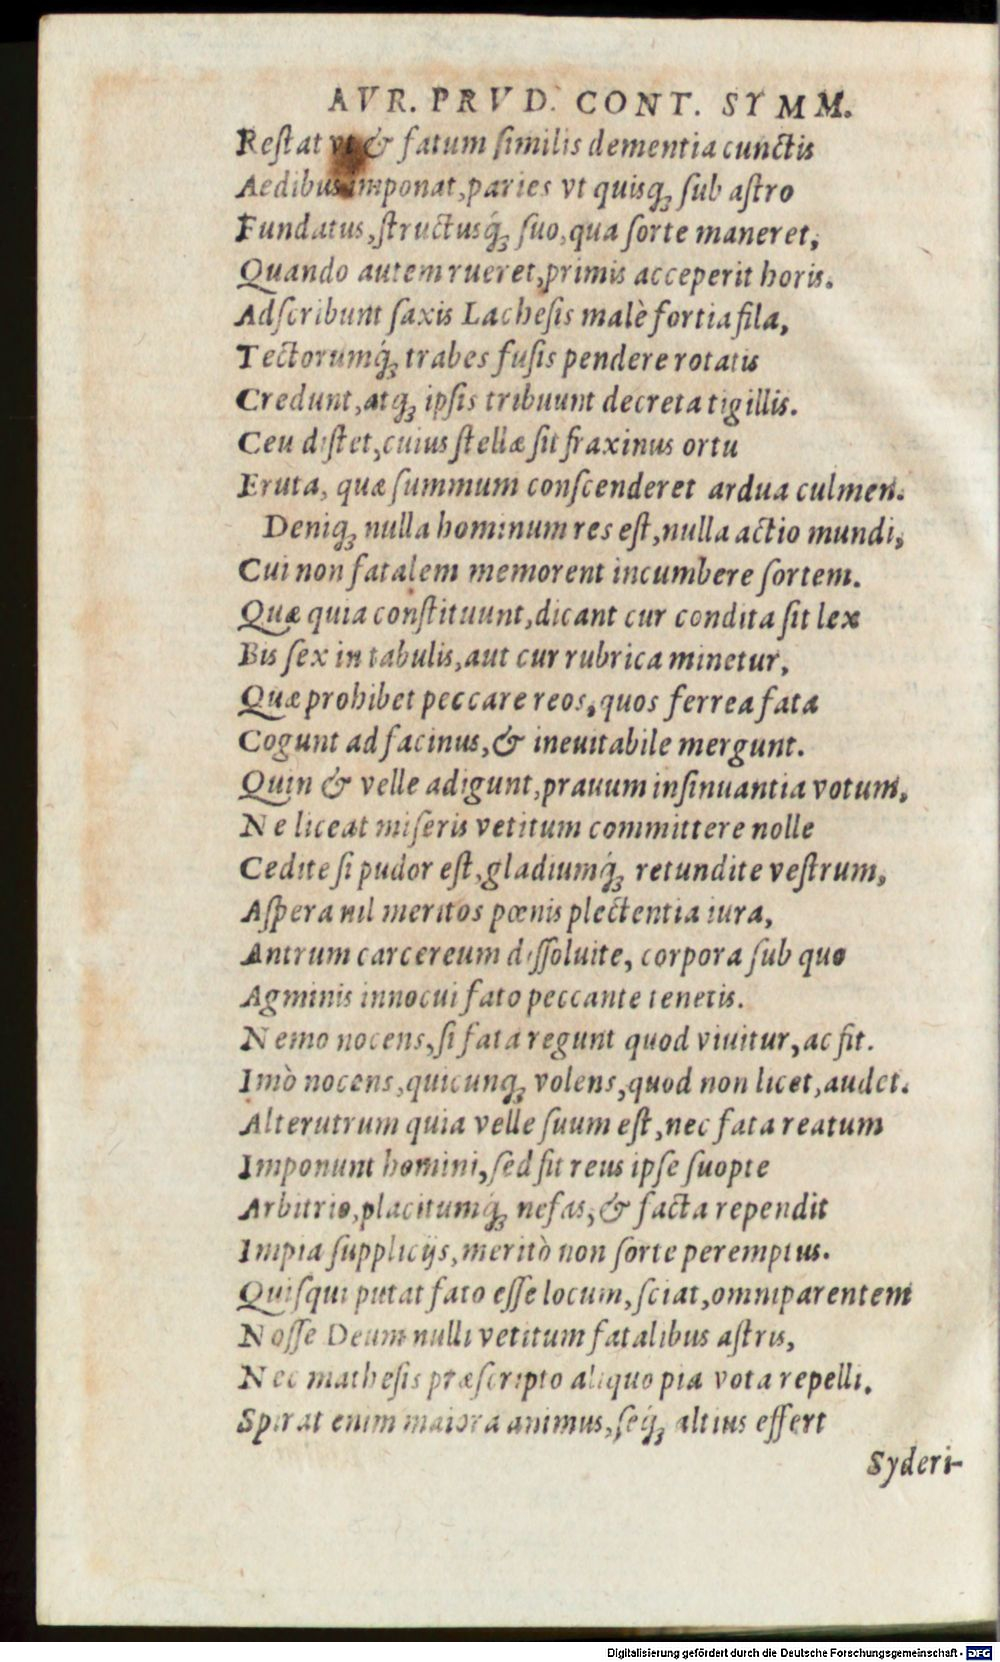 AVR. PRVD. CONT. SYMM.
Reſtat vt & fatum ſimilis dementia cunctis
Aedibus imponat, paries vt quisq́ꝫ ſub aſtro
Fundatus, ſtructusq́ꝫ ſuo, qua ſorte maneret,
Quando autem rueret, primis acceperit horis.
Adſcribunt ſaxis Lacheſis malè fortia fila,
Tectorumq́ꝫ trabes fuſis pendere rotatis
Credunt, atqꝫ ipſis tribuunt decreta tigillis.
Ceu diſtet, cuius ſtellæ ſit fraxinus ortu
Eruta, quæ ſummum conſcenderet ardua culmen.
Deniqꝫ nulla hominum res eſt, nulla actio mundi,
Cui non fatalem memorent incumbere ſortem.
Quæ quia conſtituunt, dicant cur condita ſit lex
Bis ſex in tabulis, aut cur rubrica minetur,
Quæ prohibet peccare reos, quos ferrea fata
Cogunt ad facinus, & ineuitabile mergunt.
Quin & velle adigunt, prauum inſinuantia votum,
Ne liceat miſeris vetitum committere nolle
Cedite ſi pudor eſt, gladiumq́ꝫ retundite veſtrum,
Aſpera nil meritos pœnis plectentia iura,
Antrum carcereum diſſoluite, corpora ſub quo
Agminis innocui fato peccante tenetis.
Nemo nocens, ſi fata regunt quod viuitur, ac fit.
Imò nocens, quicunqꝫ volens, quod non licet, audet.
Alterutrum quia velle ſuum eſt, nec fata reatum
Imponunt homini, ſed fit reus ipſe ſuopte
Arbitrio, placitumq́ꝫ nefas, & facta rependit
Impia ſupplicijs, meritò non ſorte peremptus.
Quiſqui putat fato eſſe locum, ſciat, omniparentem
Noſſe Deum nulli vetitum fatalibus aſtris,
Nec matheſis præſcripto aliquo pia vota repelli.
Spirat enim maiora animus, ſeq́ꝫ altius effert
Syderi-
Digitalisierung gefördert durch die Deutsche Forschungsgemeinschaft - DFG